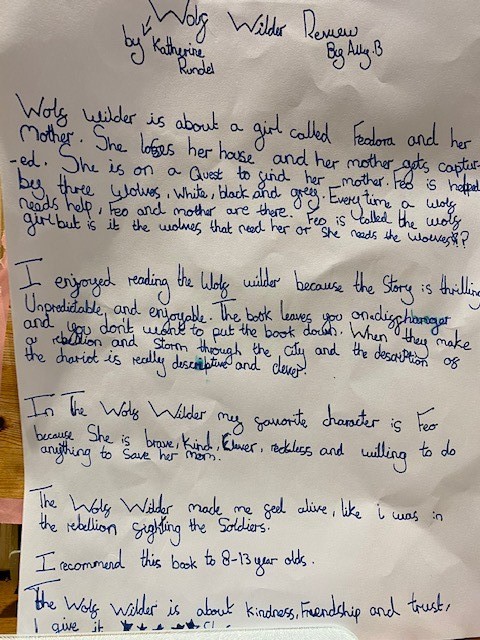 Wolf Wilder Review
by Katherine Rundel
By Ally.B
Wolf Wilder is about a girl called Feodora and her
Mother. She loses her house and her mother gets captur-
-ed. She is on a Quest to find her mother. Feo is helped
by three wolves, White, black and grey. Every time a wolf
needs help, Feo and mother are there. Feo is called the wolf
girl but is it the wolves that need her or She needs the wolves?
I enjoyed reading the Wolf wilder because the Story is thrilling
Unpredictable, and enjoyable. The book leaves you on a cliffhanger
and you don't want to put the book down. When they make
a rebellion and Storm through the city and the description of
the chariot is really descriptive and clever.
In The Wolf Wilder my favorite character is Feo
because She is brave, Kind, Clever, reckless and willing to do
anything to save her mom.
The Wolf Wilder made me feel alive, like i was in
the rebellion fighting the Soldiers.
I recommend this book to 8-13 year olds.
The Wolf Wilder is about kindness, Friendship and trust,
I give it ★★★★★